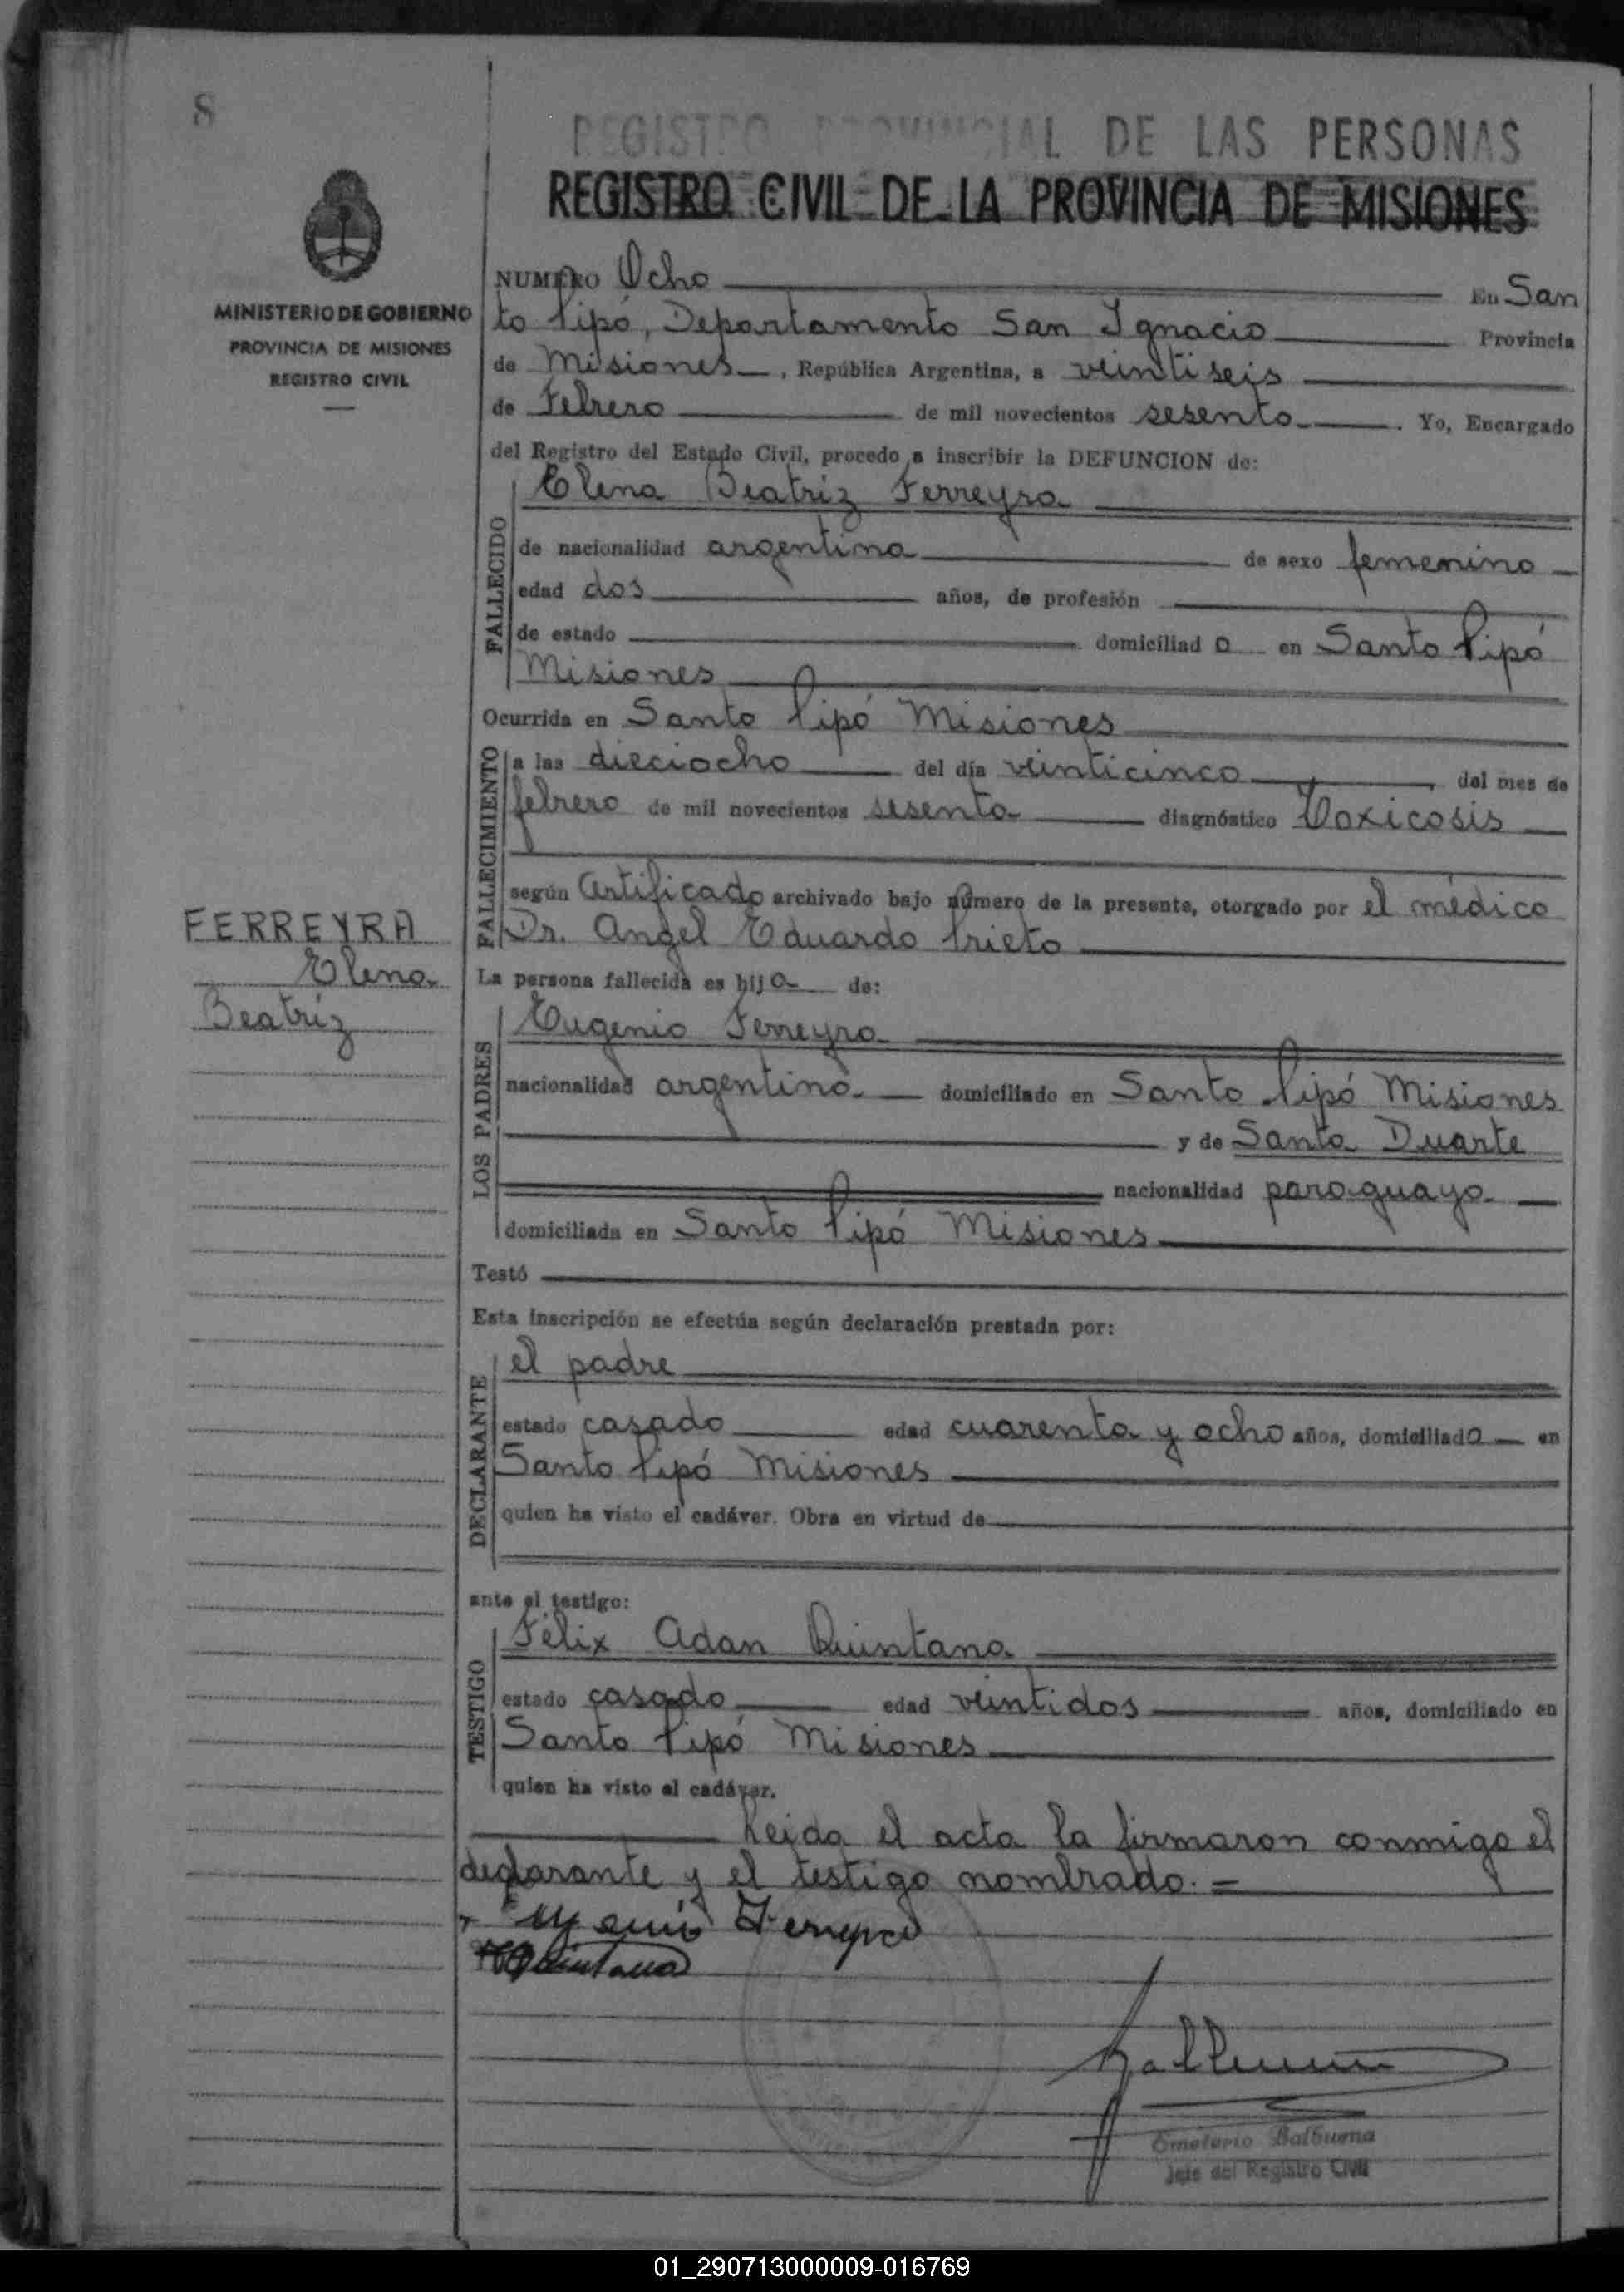 8
REGISTRO PROVINCIAL DE LAS PERSONAS
REGISTRO CIVIL DE LA PROVINCIA DE MISIONES
MINISTERIO DE GOBIERNO
PROVINCIA DE MISIONES
REGISTRO CIVIL
NUMERO Ocho En San
to Pipó, Departamento San Ignacio Provincia
de Misiones, República Argentina, a veintiseis
de Febrero de mil novecientos sesenta. Yo, Encargado
del Registro del Estado Civil, procedo a inscribir la DEFUNCION de:
FALLECIDO
Elena Beatríz Ferreyra
de nacionalidad argentina de sexo femenino
edad dos años, de profesión
de estado domiciliad a en Santo Pipó
Misiones
Ocurrida en Santo Pipó Misiones
FALLECIMIENTO
a las dieciocho del día veinticinco, del mes de
febrero de mil novecientos sesenta diagnóstico Toxicosis
según Certificado archivado bajo número de la presente, otorgado por el médico
Dr. Angel Eduardo Prieto
FERREYRA
Elena
Beatríz
La persona fallecida es hija de:
LOS PADRES
Eugenio Ferreyra
nacionalidad argentina domiciliado en Santo Pipó Misiones
y de Santa Duarte
nacionalidad paraguaya
domiciliada en Santo Pipó Misiones
Testó
Esta inscripción se efectúa según declaración prestada por:
DECLARANTE
el padre
estado casado edad cuarenta y ocho años, domiciliado en
Santo Pipó Misiones
quien ha visto el cadáver. Obra en virtud de
ante el testigo:
TESTIGO
Félix Adan Quintana
estado casado edad veintidos años, domiciliado en
Santo Pipó Misiones
quien ha visto el cadáver.
Leida el acta la firmaron conmigo el
declarante y el testigo nombrado.=
Quintana
Emeterio Balbuena
Jefe del Registro Civil
01_290713000009-016769